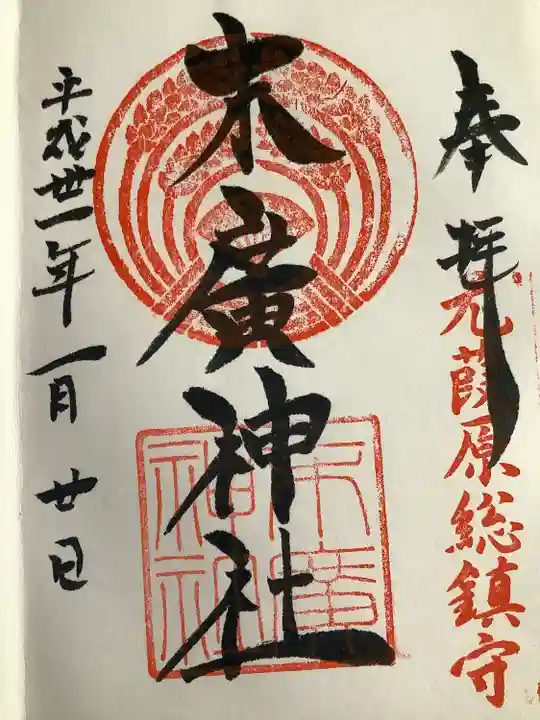 奉拝
元葭原総鎮守
末廣神社
末廣神社
平成丗一年一月廿日